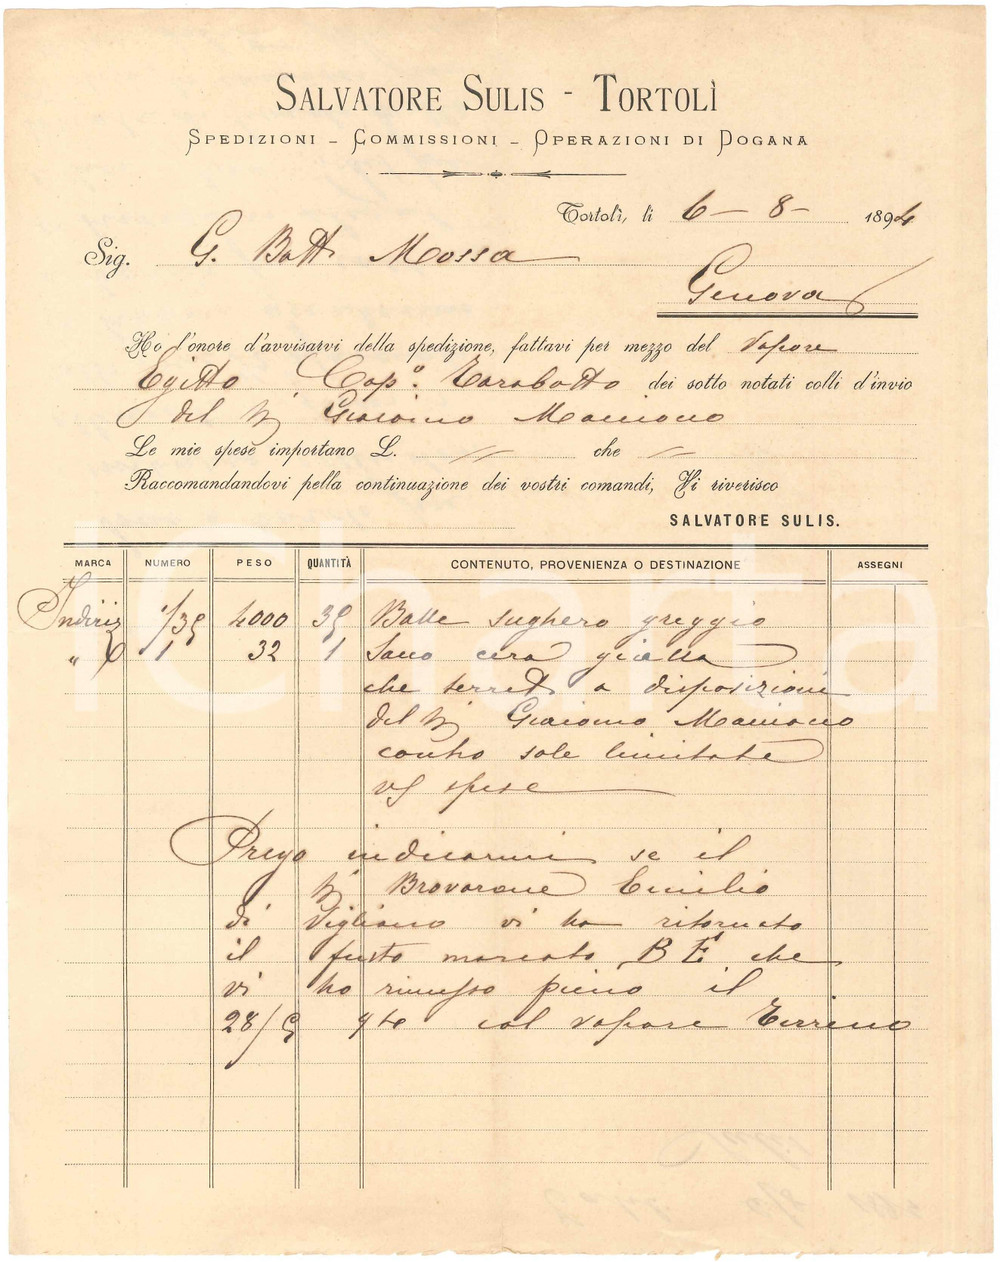 SALVATORE SULIS - TORTOLÌ
SPEDIZIONI - COMMISSIONI - OPERAZIONI DI DOGANA
Tortolì, li 6 - 8 - 1894
Sig. G. Batt Mossa
Genova
Ho l'onore d'avvisarvi della spedizione, fattavi per mezzo del Vapore
Egitto, Capº. Tarabotto dei sotto notati colli d'invio
del Giacomo Mamono
Le mie spese importano L. // che //
Raccomandandovi pella continuazione dei vostri comandi, Vi riverisco
SALVATORE SULIS.
MARCA NUMERO PESO QUANTITÀ CONTENUTO, PROVENIENZA O DESTINAZIONE ASSEGNI
Indiriz 1/35 4000 35 Balle sughero greggio
" 1 32 1 Sacco cera gialla
che terrete a disposizione
del Giacomo Mamono
contro sole limitate
vs spese
Prego indicarmi se il
Brovarone Emilio
di Vigliano vi ha ritornato
il fusto marcato BE che
vi ho rimesso pieno il
28/5 94 col vapore Tirreno
iCharta